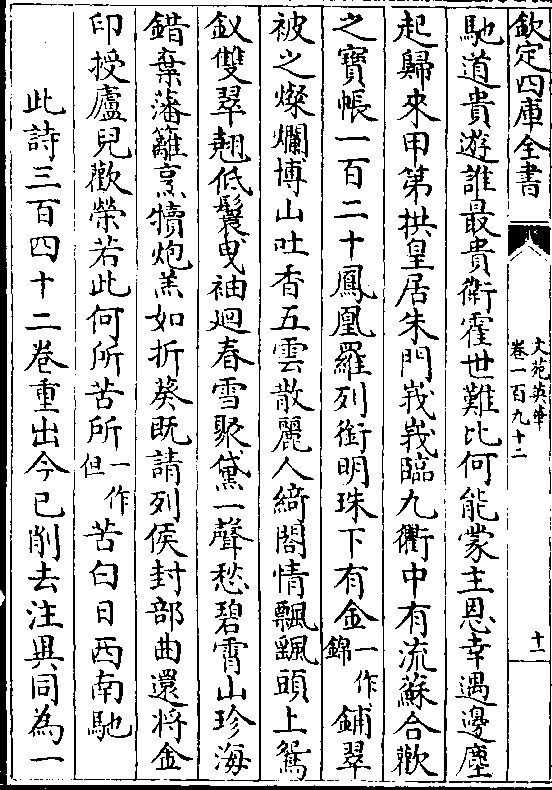 欽定四庫全書
文苑英華
卷一百九十二
十一
馳道貴遊誰最貴衛霍世難比何能蒙主恩幸遇邊塵
起歸來甲第拱皇居朱門峩峩臨九衢中有流蘇合歡
之寶帳一百二十鳳凰羅列銜明珠下有金一作錦鋪翠
被之燦爛博山吐香五雲散麗人綺閣情飄飄頭上鴛
釵雙翠翹低鬟曳袖迴春雪聚黛一聲愁碧霄山珍海
錯棄藩籬烹犢炮羔如折葵既請列侯封部曲還將金
印授廬兒歡榮若此何所苦所一作但苦白日西南馳
此詩三百四十二卷重出今已削去注異同為一